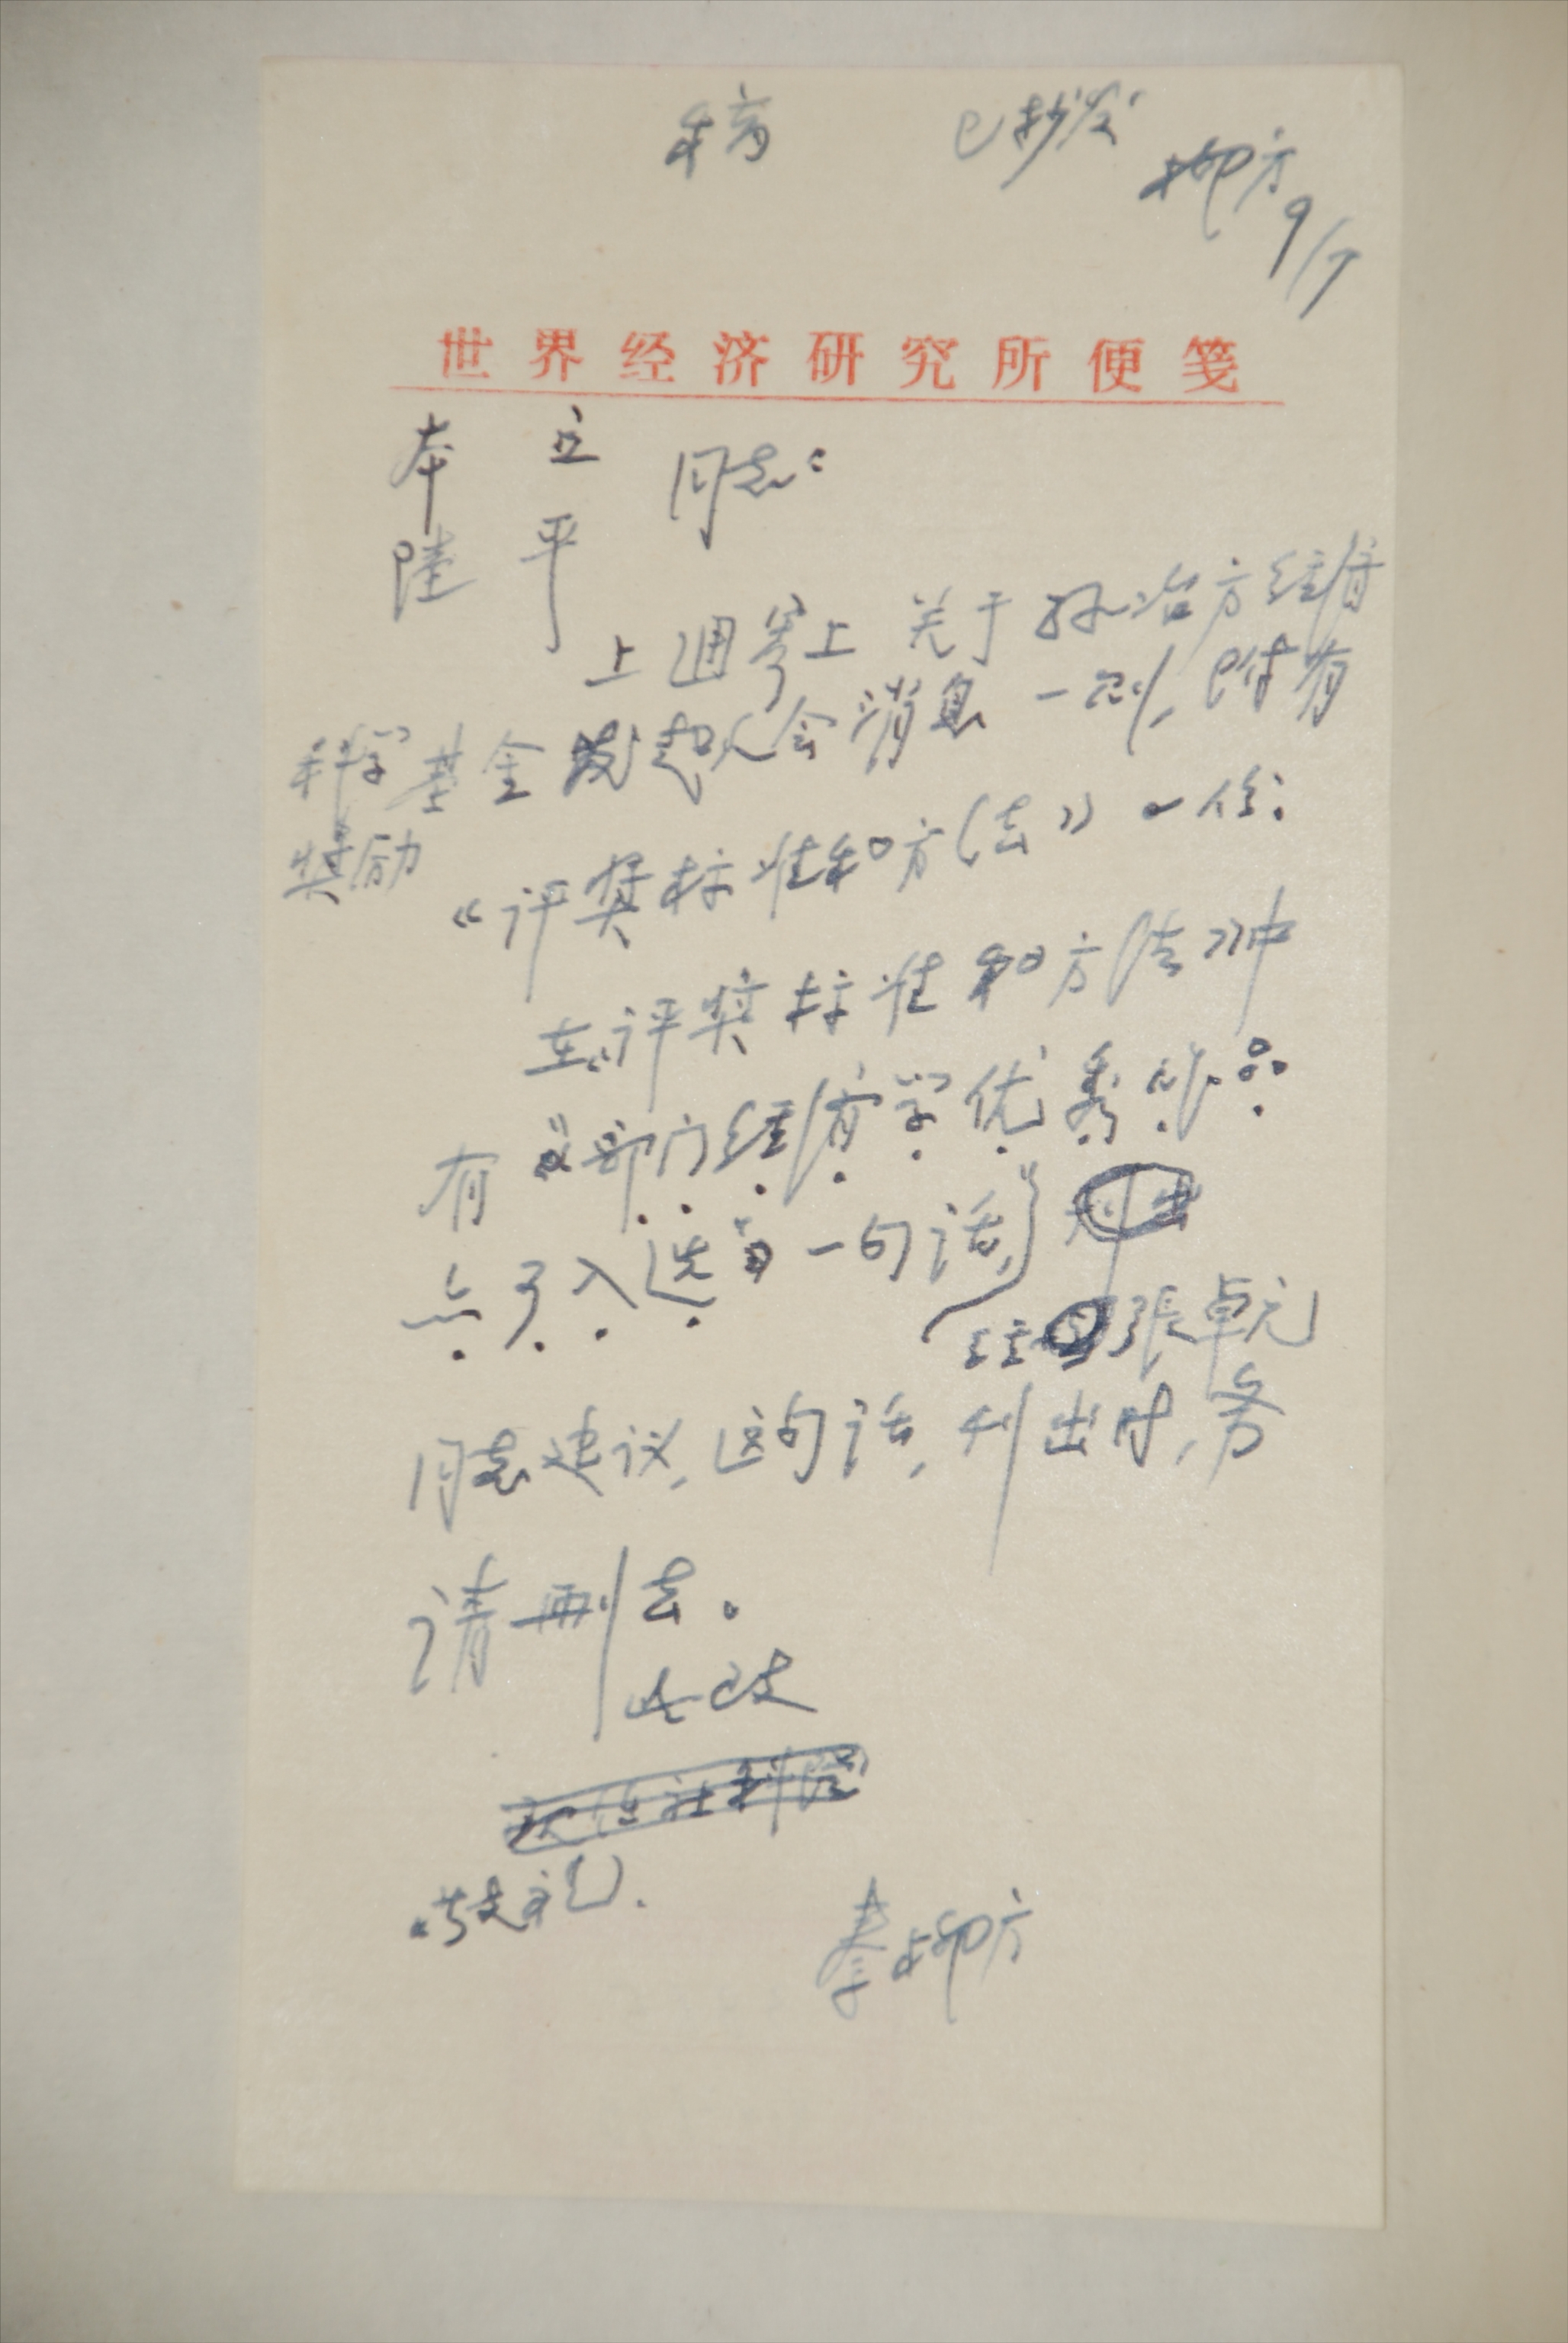 稿 已抄发 柳方 9/5
世界经济研究所便笺
本立 同志:
陆平
上週寄上关于孙冶方经济
科学基金发起人会消息一则,附有
奖励
《评奖标准和方法》一份:
在《评奖标准和方法》中
有“部门经济学优秀作品
亦可入选”一句话,
经 张卓元
同志建议,这句话,刊出时,务
请删去。
此致
敬礼.
秦柳方